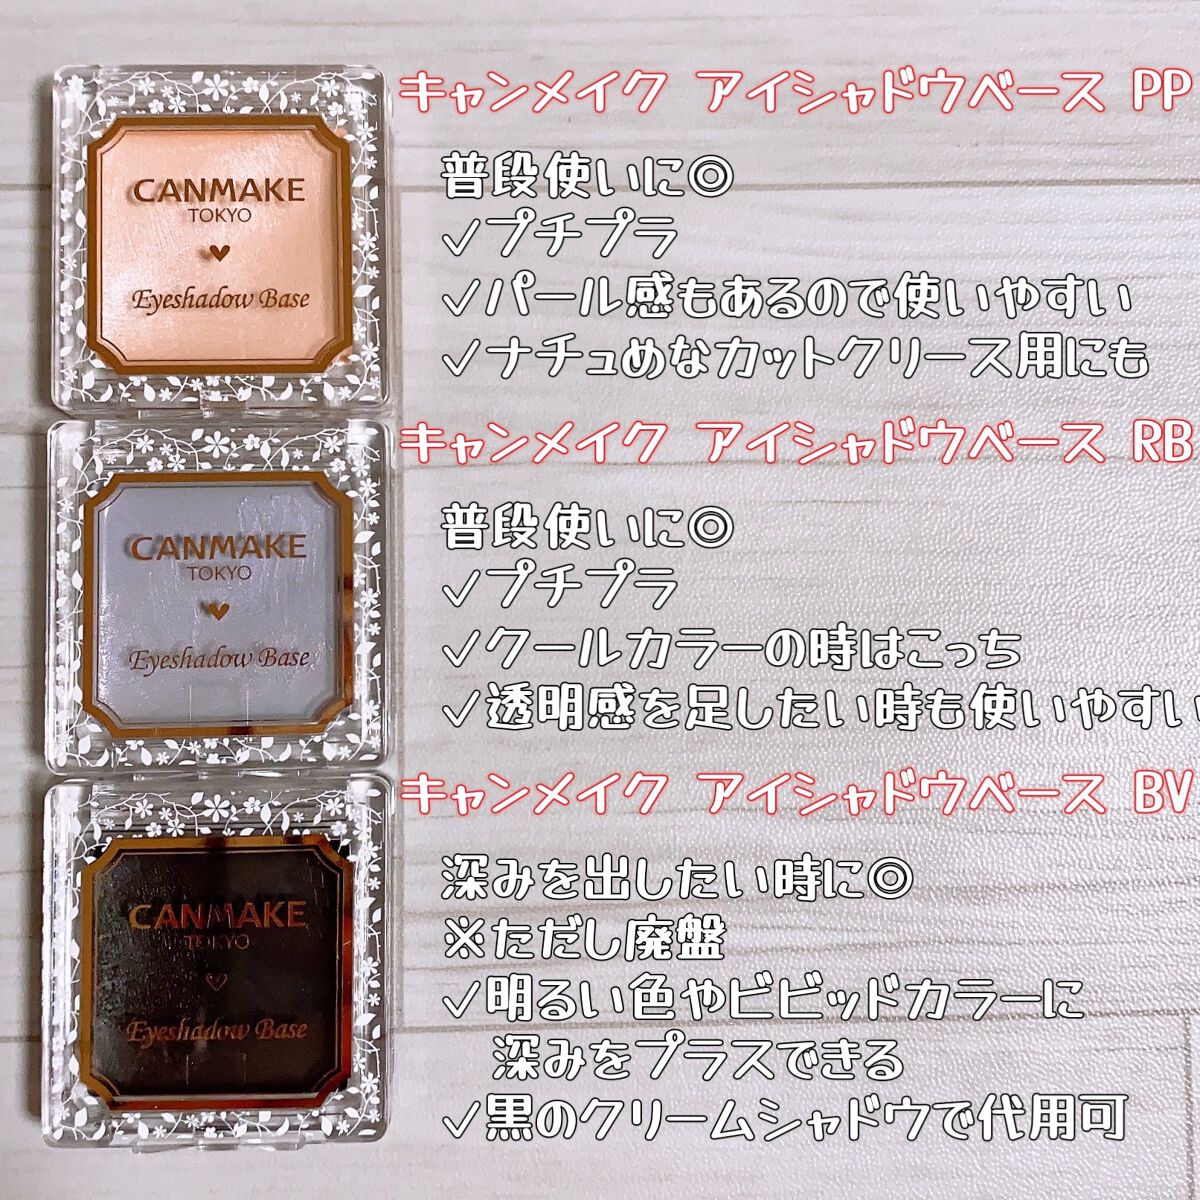 キャンメイク アイシャドウベース PP
CANMAKE
TOKYO
Eyeshadow Base
普段使いに◎
✓プチプラ
✓パール感もあるので使いやすい
✓ナチュめなカットクリース用にも
キャンメイク アイシャドウベース RB
CANMAKE
TOKYO
Eyeshadow Base
普段使いに◎
✓プチプラ
✓クールカラーの時はこっち
✓透明感を足したい時も使いやすい
キャンメイク アイシャドウベース BV
CANMAKE
TOKYO
Eyeshadow Base
深みを出したい時に◎
※ただし廃盤
✓明るい色やビビッドカラーに
深みをプラスできる
✓黒のクリームシャドウで代用可